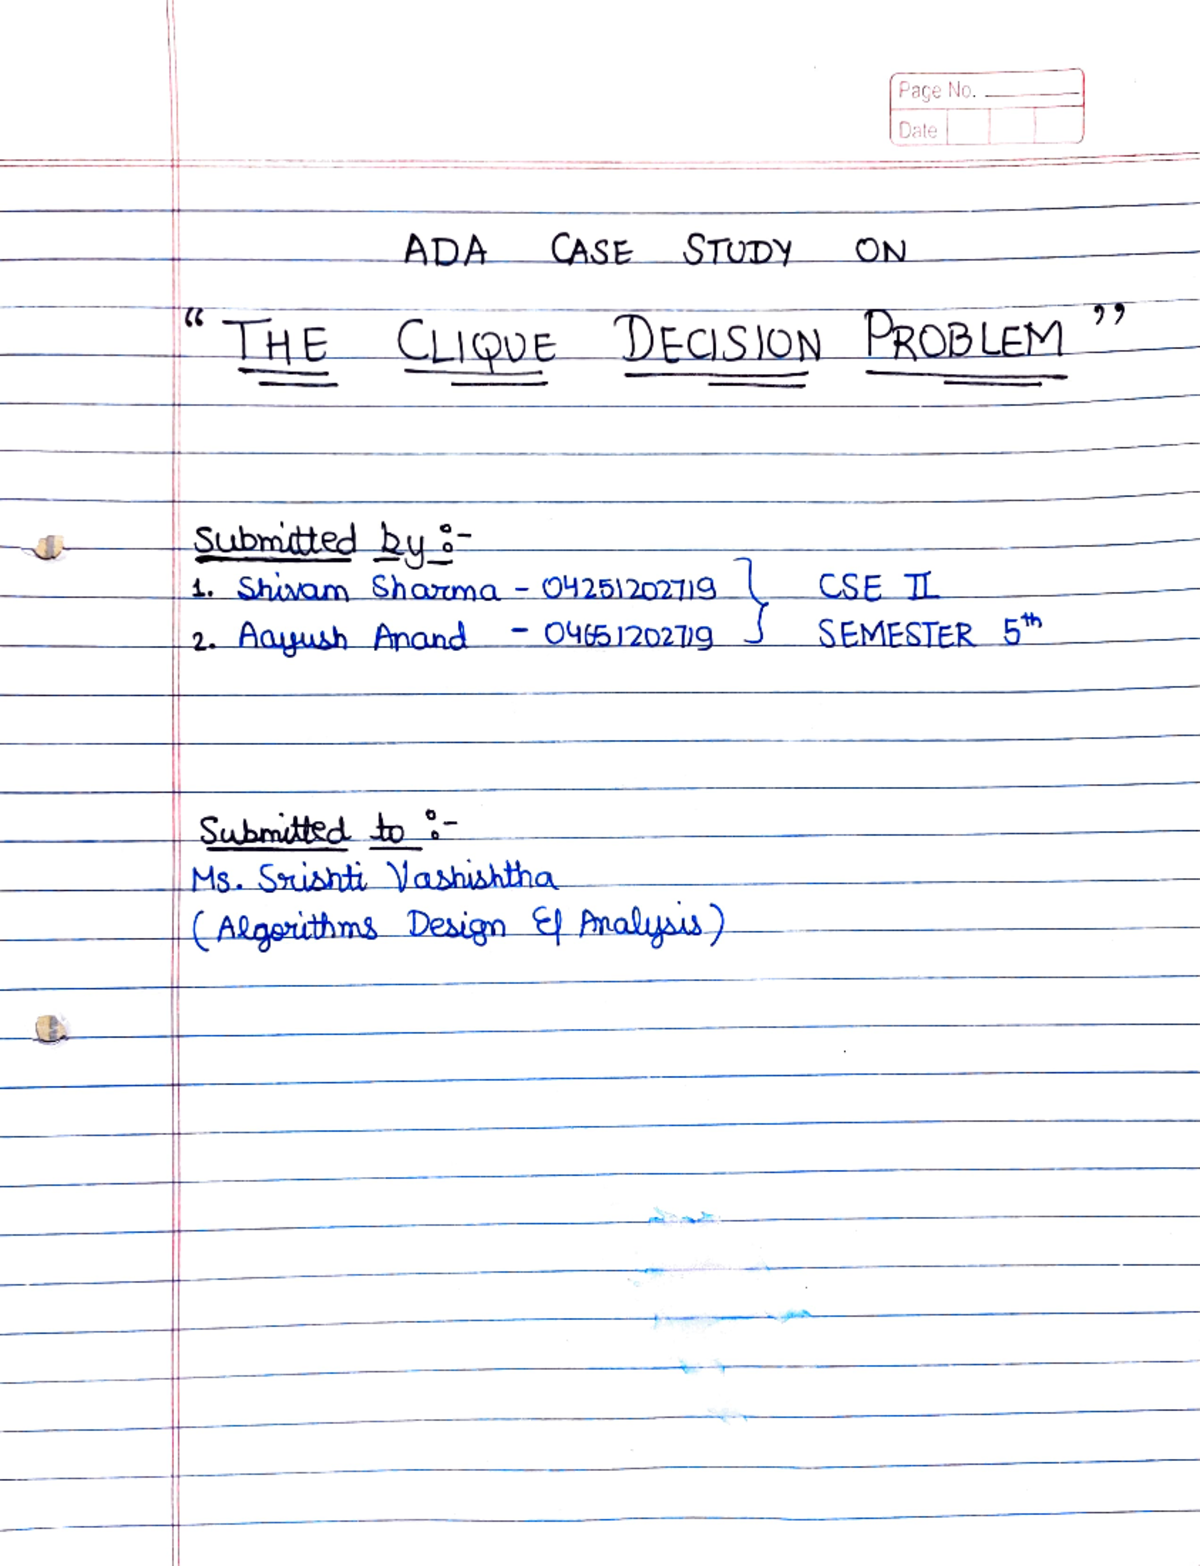 Page No.
Date
ADA CASE STUDY ON
“ THE CLIQUE DECISION PROBLEM ”
Submitted by :-
1. Shivam Sharma - 04251202719 } CSE II
2. Aayush Anand - 04651202719 SEMESTER 5th
Submitted to :-
Ms. Srishti Vashishtha
(Algorithms Design & Analysis)